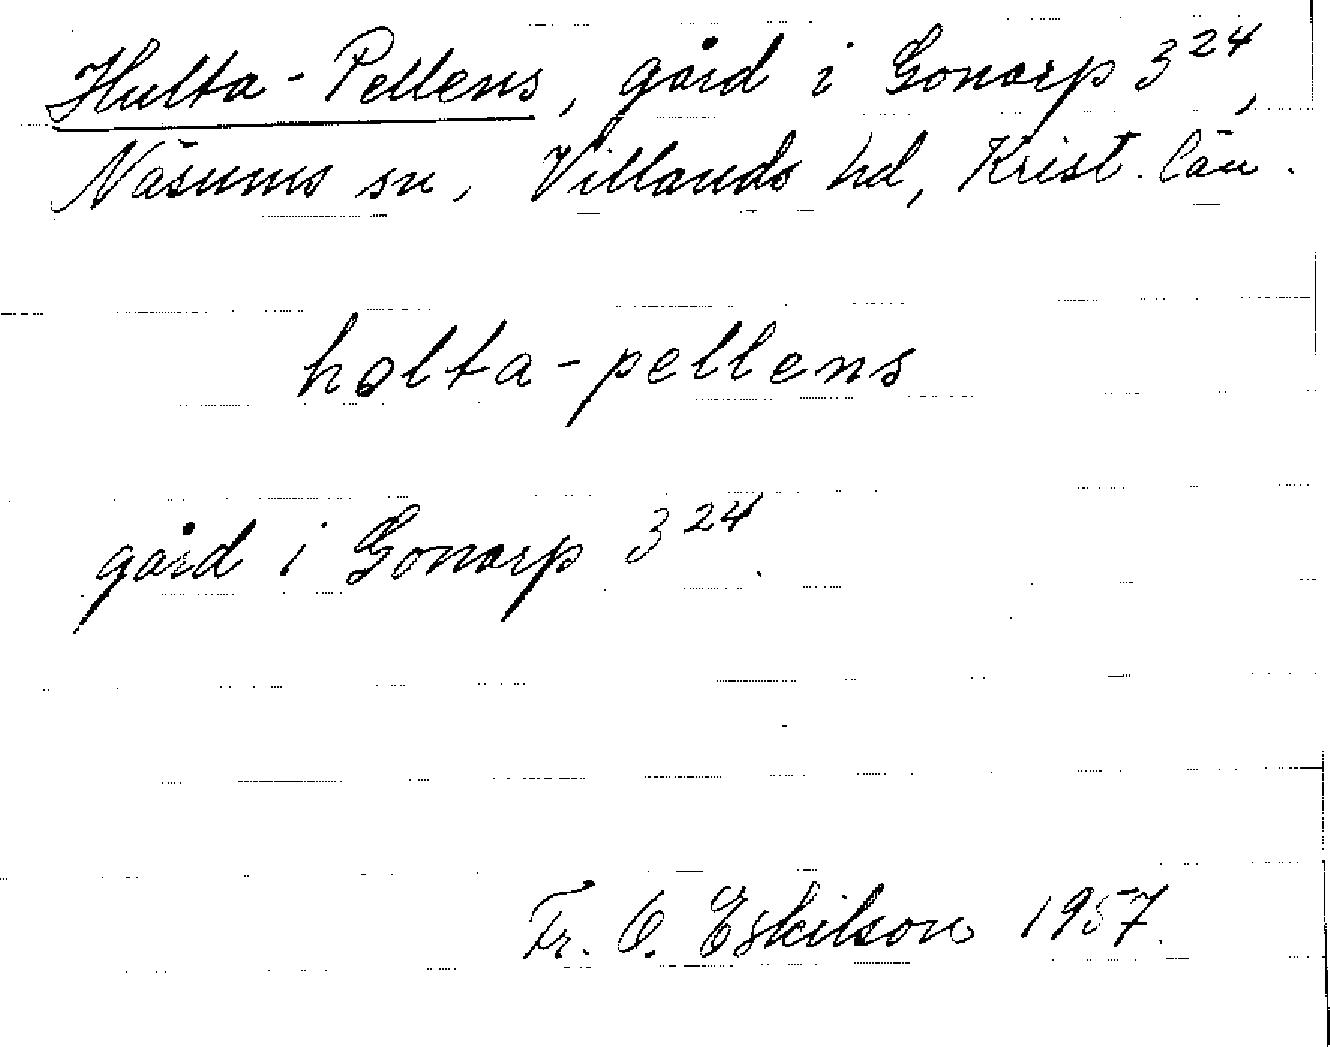 Hulta-Pellens, gård i Gonarp 3²⁴,
Näsums sn, Villands hd, Krist. län.
holta-pellens
gård i Gonarp 3²⁴.
Fr. O. Eskilson 1957.